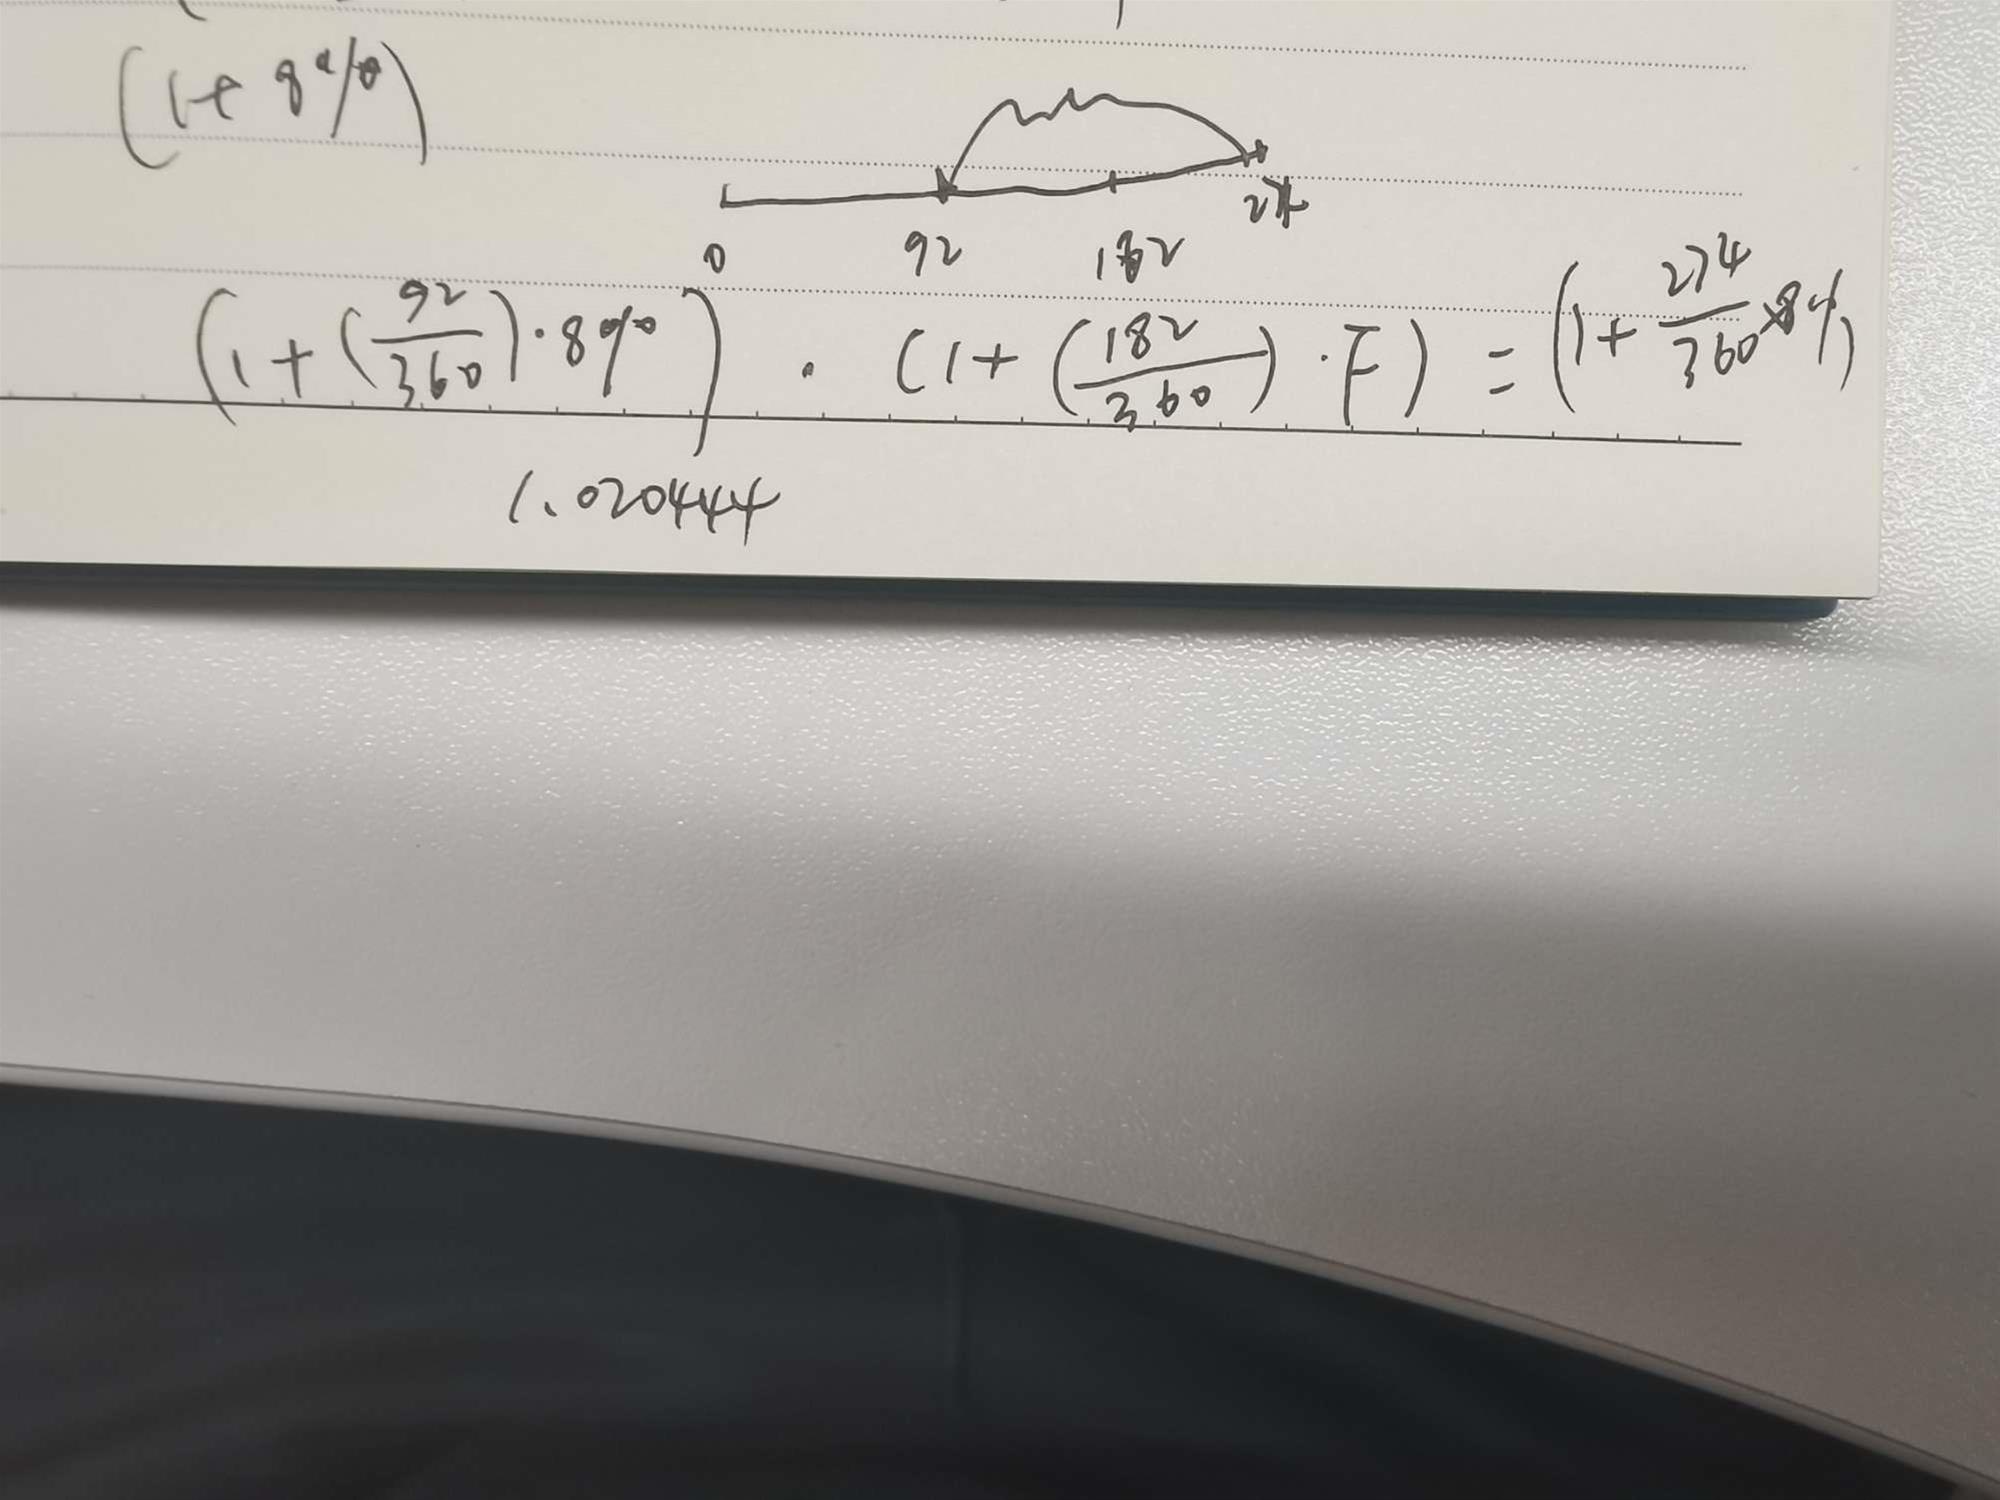 (1+ 8%)
0 92 182 274
(1+(92/360)·8%) · (1+(182/360)·F) = (1+274/360×8%)
1.020444